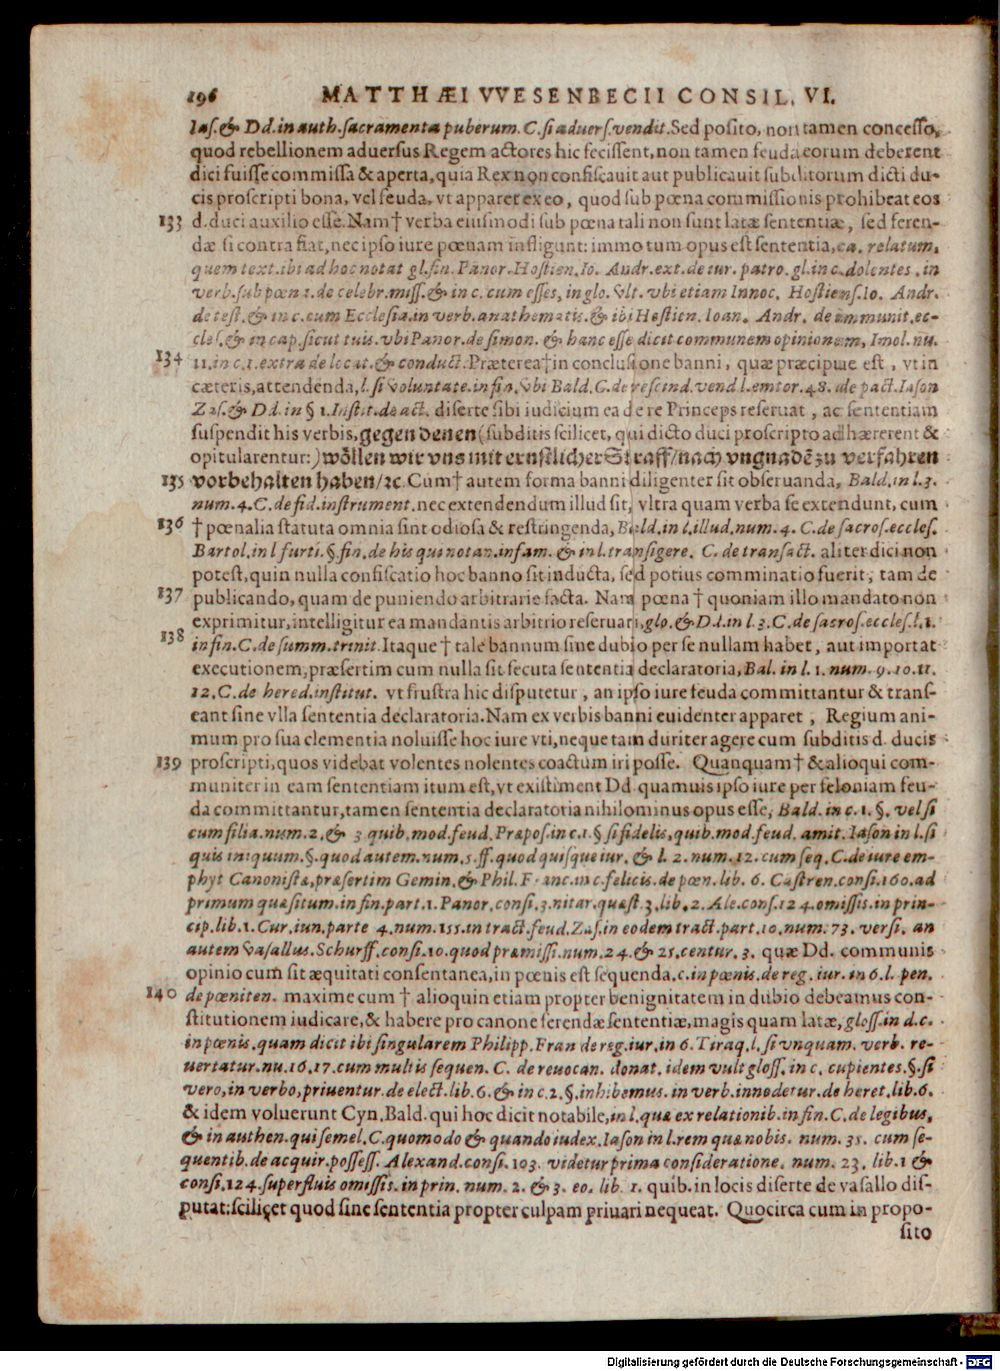 196 MATTHÆI VVESENBECII CONSIL. VI.
Ias. & Dd. in auth. sacramenta puberum. C. si aduers. vendit. Sed posito, non tamen concesso,
quod rebellionem aduersus Regem actores hic fecissent, non tamen feuda eorum deberent
dici fuisse commissa & aperta, quia Rex non confiscauit aut publicauit subditorum dicti du-
cis proscripti bona, vel feuda, vt apparet ex eo, quod sub pœna commissionis prohibeat eos
133 d. duci auxilio esse. Nam † verba eiusmodi sub pœna tali non sunt latæ sententiæ, sed feren-
dæ si contra fiat, nec ipso iure pœnam infligunt: immo tum opus est sententia, ca. relatum,
quem text. ibi ad hoc notat gl. fin. Panor. Hostien. Io. Andr. ext. de iur. patro. gl. in c. dolentes. in
verb. sub pœn 1. de celebr. miss. & in c. cum esses, in glo. vlt. vbi etiam Innoc. Hostiens. Io. Andr.
de test. & in c. cum Ecclesia. in verb. anathematis. & ibi Hostien. Ioan. Andr. de immunit. ec-
cles. & in cap. sicut tuis. vbi Panor. de simon. & hanc esse dicit communem opinionem, Imol. nu.
134 11. in c. 1. extra de locat. & conduct. Præterea † in conclusione banni, quæ præcipue est, vt in
cæteris, attendenda, l. si voluntate. in fin. vbi Bald. C. de rescind. vend l. emtor. 48. de pact. Iason
Zas. & Dd. in § 1. Instit. de act. diserte sibi iudicium ea de re Princeps reseruat, ac sententiam
suspendit his verbis, gegen denen (subditis scilicet, qui dicto duci proscripto adhærerent &
opitularentur:) wöllen wir vns mit ernstlicher Straff/ nach vngnadē zu verfahren
135 vorbehalten haben/ ꝛc. Cum † autem forma banni diligenter sit obseruanda, Bald. in l. 3.
num. 4. C. de fid. instrument. nec extendendum illud sit, vltra quam verba se extendunt, cum
136 † pœnalia statuta omnia sint odiosa & restringenda, Bald. in l. illud. num. 4. C. de sacros. eccles.
Bartol. in l furti. §. fin. de his qui notan. infam. & in l. transigere. C. de transact. aliter dici non
potest, quin nulla confiscatio hoc banno sit inducta, sed potius comminatio fuerit, tam de
137 publicando, quam de puniendo arbitrarie facta. Nam pœna † quoniam illo mandato non
exprimitur, intelligitur ea mandantis arbitrio reseruari, glo. & Dd. in l 3. C. de sacros. eccles. l. 1.
138 in fin. C. de summ. trinit. Itaque † tale bannum sine dubio per se nullam habet, aut importat
executionem, præsertim cum nulla sit secuta sententia declaratoria, Bal. in l. 1. num. 9. 10. 11.
12. C. de hered. institut. vt frustra hic disputetur, an ipso iure feuda committantur & trans-
eant sine vlla sententia declaratoria. Nam ex verbis banni euidenter apparet, Regium ani-
mum pro sua clementia noluisse hoc iure vti, neque tam duriter agere cum subditis d. ducis
139 proscripti, quos videbat volentes nolentes coactum iri posse. Quanquam † & alioqui com-
muniter in eam sententiam itum est, vt existiment Dd quamuis ipso iure per feloniam feu-
da committantur, tamen sententia declaratoria nihilominus opus esse, Bald. in c. 1. §. vel si
cum filia. num. 2. & 3 quib. mod. feud. Præpos. in c. 1. § si fidelis, quib. mod. feud. amit. Iason in l. si
quis iniquum. §. quod autem. num. 5. ff. quod quisque iur. & l. 2. num. 12. cum seq. C. de iure em-
phyt Canonistæ, præsertim Gemin. & Phil. Franc. in c. felicis. de pœn. lib. 6. Castren. consi. 160. ad
primum quæsitum. in fin. part. 1. Panor. consi. 3. nitar. quæst. 3. lib. 2. Ale. cons. 124. omissis. in prin-
cip. lib. 1. Cur. iun. parte 4. num. 155. in tract. feud. Zas. in eodem tract. part. 10. num. 73. versi. an
autem vasallus. Schurff. consi. 10. quod præmissi. num. 24. & 25. centur. 3. quæ Dd. communis
opinio cum sit æquitati consentanea, in pœnis est sequenda. c. in pœnis. de reg. iur. in 6. l. pen.
140 de pœniten. maxime cum † alioquin etiam propter benignitatem in dubio debeamus con-
stitutionem iudicare, & habere pro canone ferendæ sententiæ, magis quam latæ, gloss. in d. c.
in pœnis. quam dicit ibi singularem Philipp. Fran de reg. iur. in 6. Tiraq. l. si vnquam. verb. re-
uertatur. nu. 16. 17. cum multis sequen. C. de reuocan. donat. idem vult gloss. in c. cupientes. §. si
vero, in verbo, priuentur. de elect. lib. 6. & in c. 2. §. inhibemus. in verb. innodetur. de heret. lib. 6.
& idem voluerunt Cyn. Bald. qui hoc dicit notabile, in l. quæ ex relationib. in fin. C. de legibus,
& in authen. qui semel. C. quomodo & quando iudex. Iason in l. rem quæ nobis. num. 35. cum se-
quentib. de acquir. possess. Alexand. consi. 103. videtur prima consideratione. num. 23. lib. 1 &
consi. 124. superfluis omissis. in prin. num. 2. & 3. eo. lib. 1. quib. in locis diserte de vasallo dis-
putat: scilicet quod sine sententia propter culpam priuari nequeat. Quocirca cum in propo-
sito
Digitalisierung gefördert durch die Deutsche Forschungsgemeinschaft - DFG